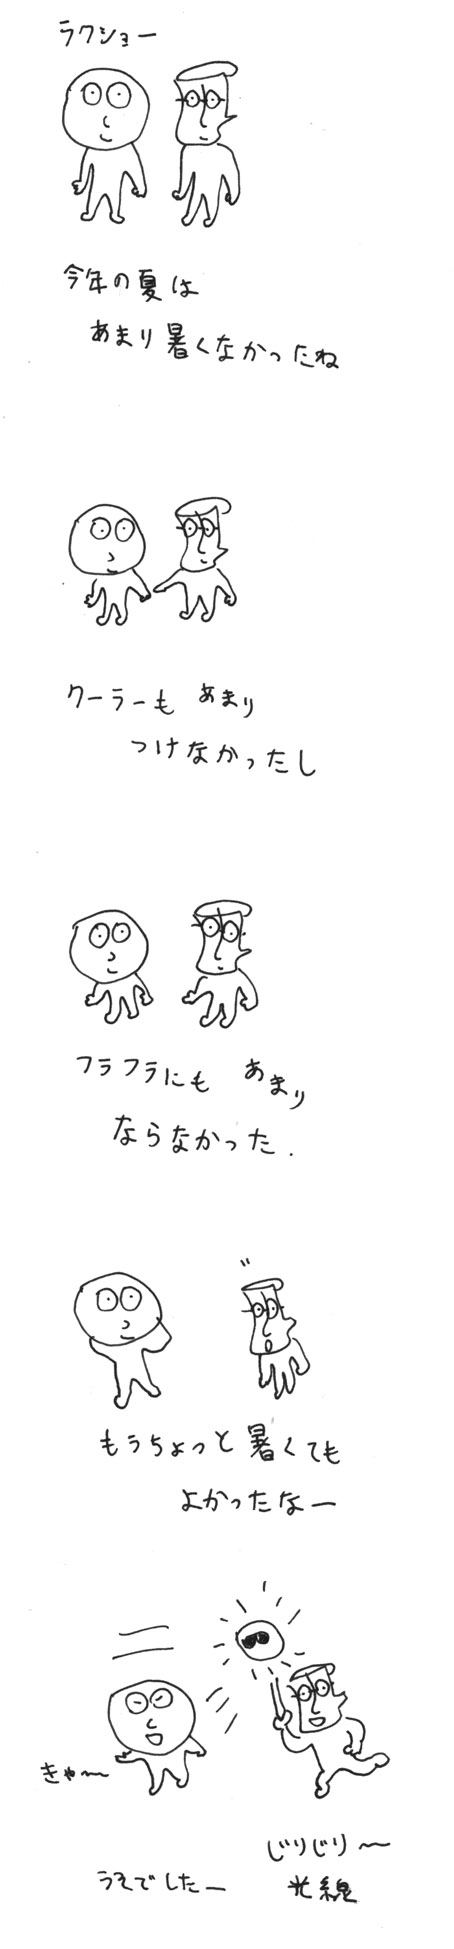 ラクショー
今年の夏は
あまり暑くなかったね
クーラーも あまり
つけなかったし
フラフラにも あまり
ならなかった.
もうちょっと暑くても
よかったなー
きゃ〜
じりじり〜
うそでしたー
光線